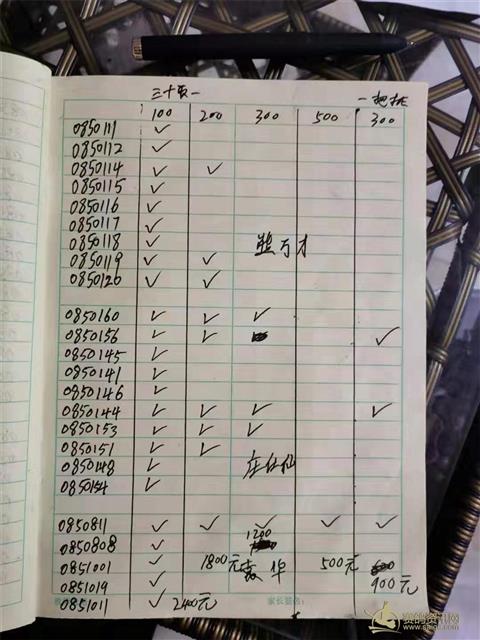 三十取一 一把抓
100 200 300 500 300
0850111 ✓
0850112 ✓
0850114 ✓ ✓
0850115 ✓
0850116 ✓
0850117 ✓
0850118 ✓ 万才
0850119 ✓ ✓
0850120 ✓ ✓
0850160 ✓ ✓ ✓
0850156 ✓ ✓ ✓
0850145 ✓
0850141 ✓
0850146 ✓
0850144 ✓ ✓ ✓ ✓
0850153 ✓ ✓ ✓
0850151 ✓ ✓
0850148 ✓ 庄仕仙
0850154 ✓
0850811 ✓ ✓ ✓ ✓ ✓
0850808 ✓ 1200
0851001 ✓ 1800元 华 500元
0851019 ✓ 900元
0851011 ✓ 2400元
家长签名:
赛鸽资讯网